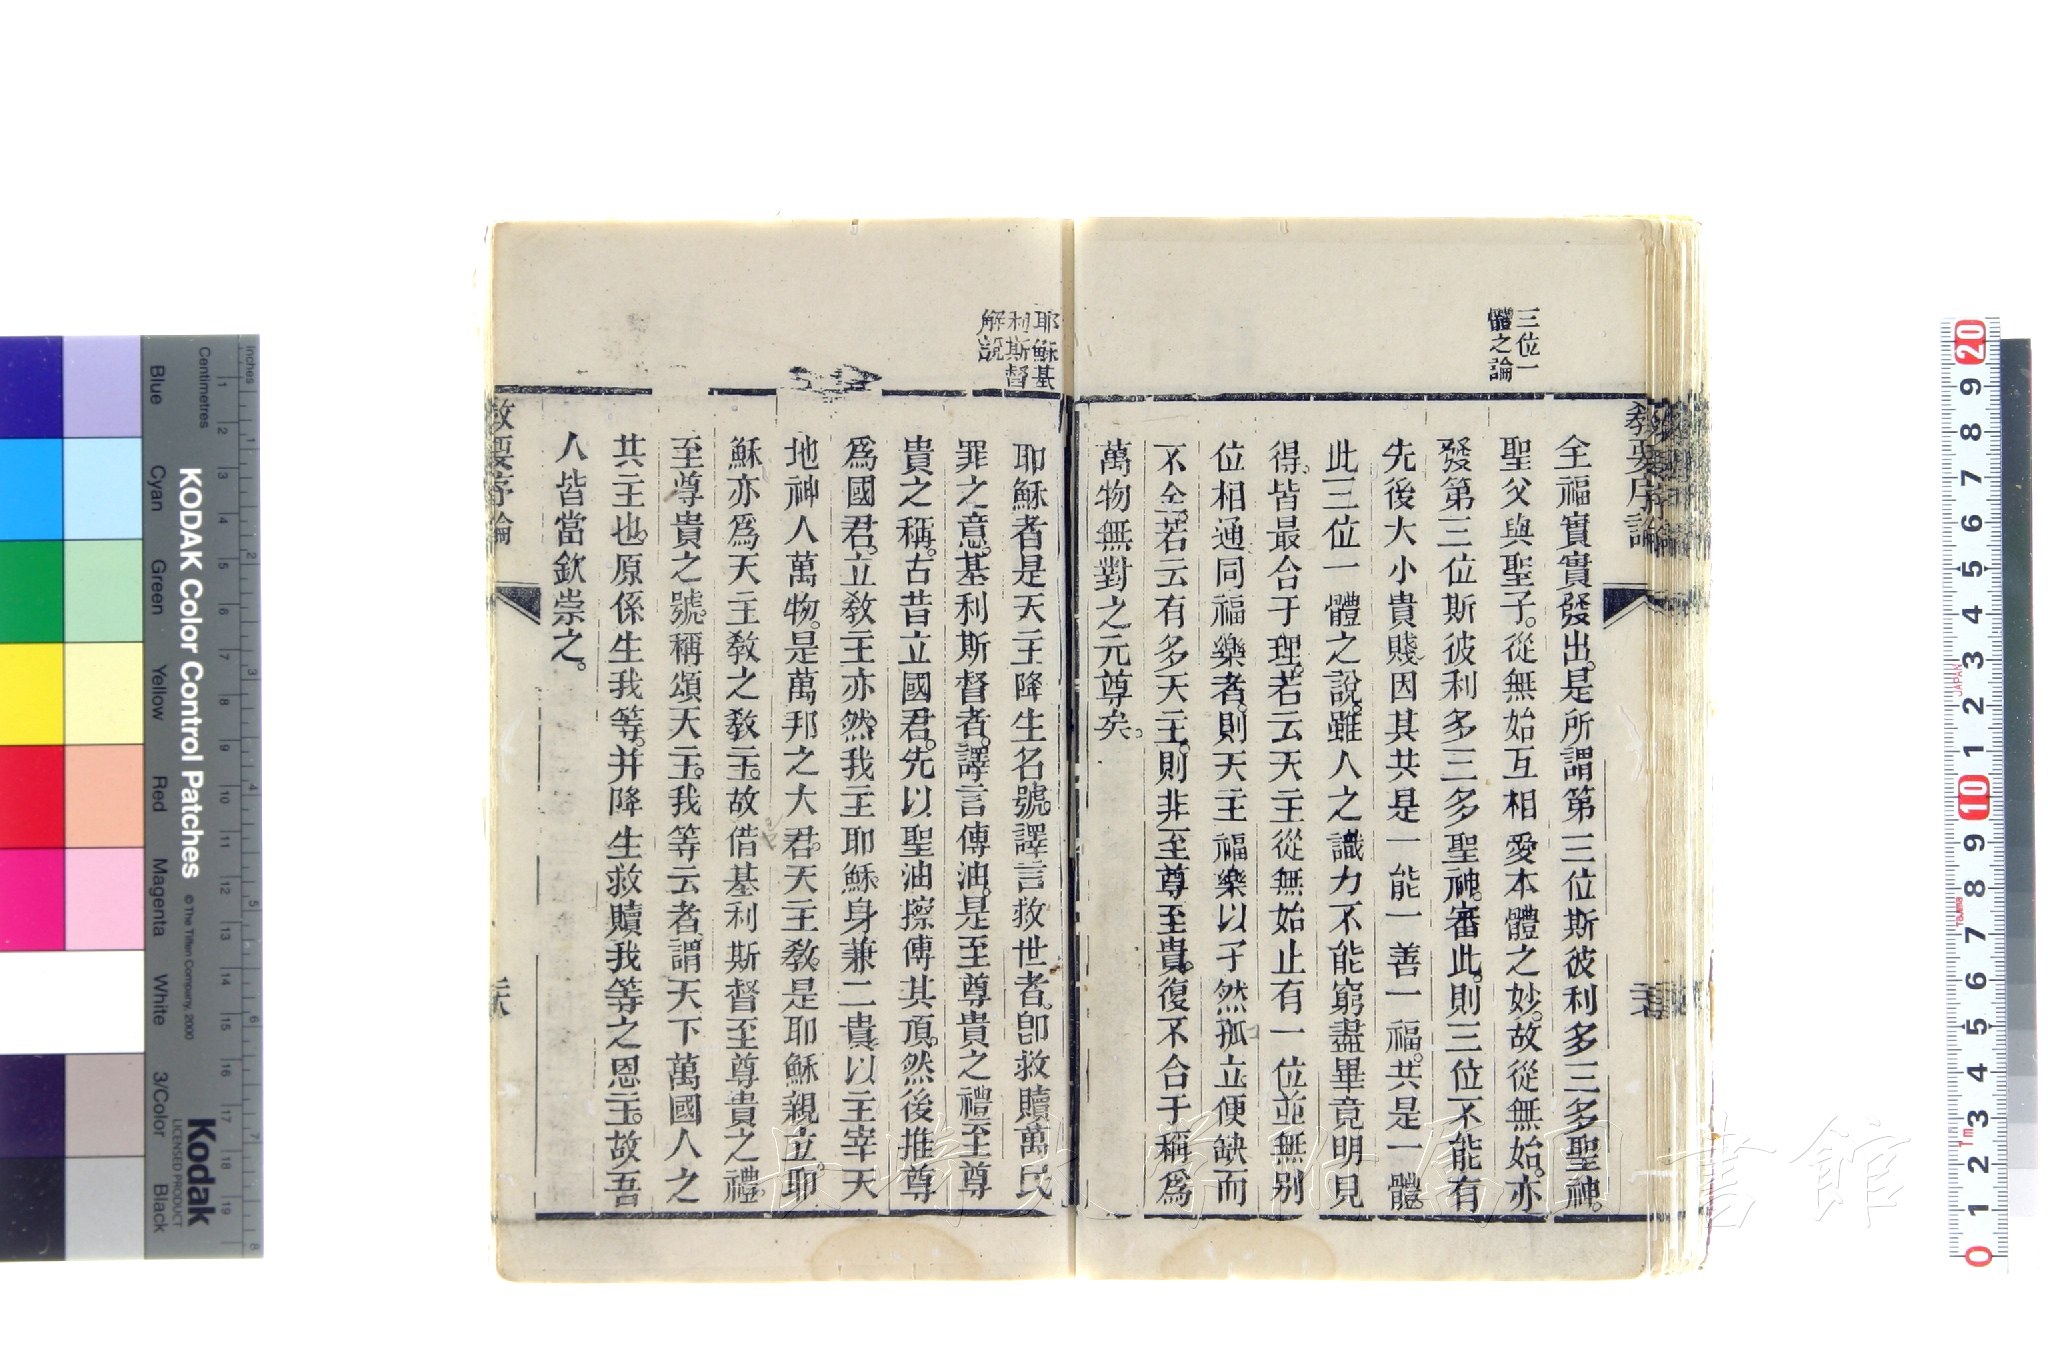 三位一
體之論
教要序論
全福實實發出。是所謂第三位斯彼利多三多聖神。
聖父與聖子。從無始互相愛本體之妙。故從無始。亦
發第三位斯彼利多三多聖神。審此。則三位不能有
先後大小貴賤。因其共是一能一善一福。共是一體。
此三位一體之說。雖人之識力不能窮盡。畢竟明見
得。皆最合于理。若云天主從無始止有一位。並無別
位相通同福樂者。則天主福樂以孑然孤立。便缺而
不全。若云有多天主。則非至尊至貴。復不合于稱為
萬物無對之元尊矣。
耶穌基
利斯督
解說
耶穌者是天主降生名號。譯言救世者。卽救贖萬民
罪之意。基利斯督者。譯言傳油。是至尊貴之禮。至尊
貴之稱。古昔立國君。先以聖油擦傅其頂。然後推尊
為國君。立教主亦然。我主耶穌身兼二貴。以主宰天
地神人萬物。是萬邦之大君。天主教。是耶穌親立。耶
穌亦為天主教之教主。故借基利斯督至尊貴之禮。
至尊貴之號。稱頌天主。我等云者。謂天下萬國人之
共主也。原係生我等。并降生救贖我等之恩主。故吾
人皆當欽崇之。
教要序論
長崎大学附属図書館
KODAK Color Control Patches
© The Tiffen Company, 2000
Kodak
LICENSED PRODUCT
Inches
Centimetres
Blue
Cyan
Green
Yellow
Red
Magenta
White
3/Color
Black
1 2 3 4 5 6 7 8 9 10 11 12 13 14 15 16 17 18 19
1 2 3 4 5 6 7 8
20 9 8 7 6 5 4 3 2 1 10 9 8 7 6 5 4 3 2 1 0
JAPAN